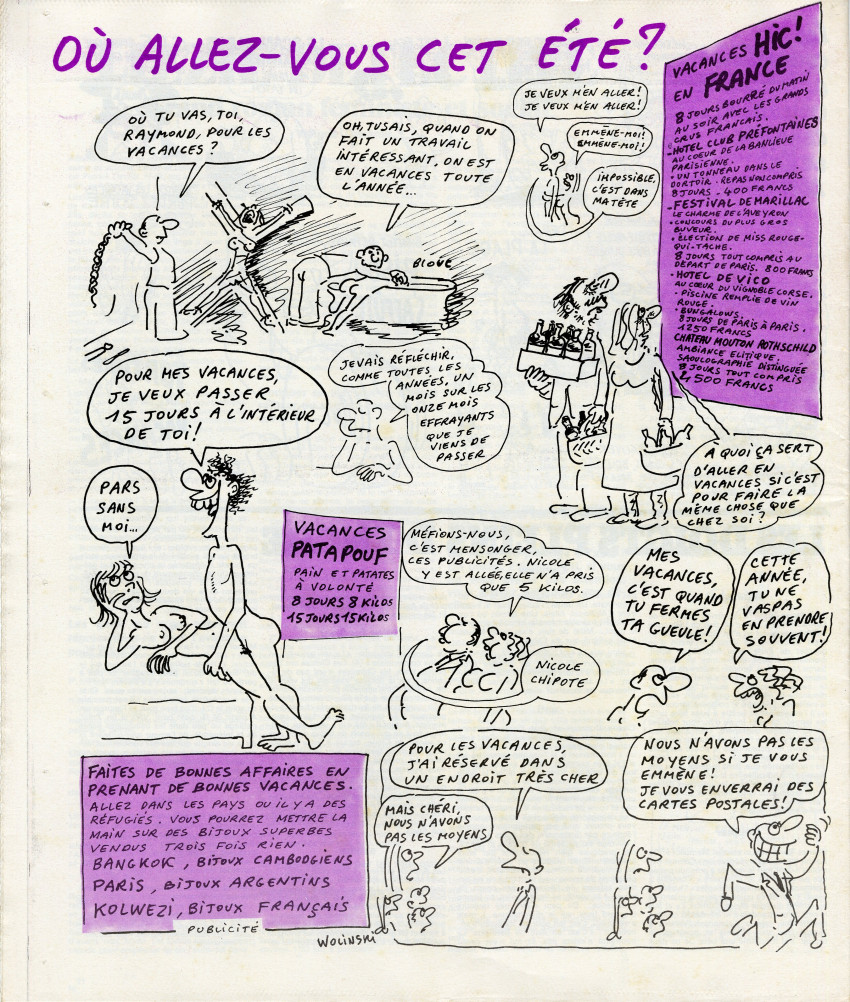 OÙ ALLEZ-VOUS CET ÉTÉ?
OÙ TU VAS, TOI,
RAYMOND, POUR LES
VACANCES ?
OH, TU SAIS, QUAND ON
FAIT UN TRAVAIL
INTÉRESSANT, ON EST
EN VACANCES TOUTE
L'ANNÉE...
JE VEUX M'EN ALLER!
JE VEUX M'EN ALLER!
EMMÈNE-MOI!
EMMÈNE-MOI!
IMPOSSIBLE,
C'EST DANS
MA TÊTE
VACANCES HIC!
EN FRANCE
8 JOURS BOURRÉ DU MATIN
AU SOIR AVEC LES GRANDS
CRUS FRANCAIS.
-HOTEL CLUB PRÉFONTAINES
AU COEUR DE LA BANLIEUE
PARISIENNE.
- UN TONNEAU DANS LE
DORTOIR. REPAS NON COMPRIS
8 JOURS - 400 FRANCS
-FESTIVAL DE MARILLAC
LE CHARME DE L'AVEYRON
• CONCOURS DU PLUS GROS
BUVEUR.
• ÉLECTION DE MISS ROUGE-
QUI-TACHE.
8 JOURS TOUT COMPRIS AU
DÉPART DE PARIS. 800 FRANCS
- HOTEL DE VICO
AU COEUR DU VIGNOBLE CORSE.
• PISCINE REMPLIE DE VIN
ROUGE.
• BUNGALOWS.
8 JOURS DE PARIS À PARIS.
1250 FRANCS
CHATEAU MOUTON ROTHSCHILD
AMBIANCE ELITIQUE.
SAOULOGRAPHIE DISTINGUÉE
8 JOURS TOUT COMPRIS
4 500 FRANCS
POUR MES VACANCES,
JE VEUX PASSER
15 JOURS À L'INTÉRIEUR
DE TOI!
PARS
SANS
MOI...
JE VAIS RÉFLÉCHIR,
COMME TOUTES LES
ANNÉES, UN
MOIS SUR LES
ONZE MOIS
EFFRAYANTS
QUE JE
VIENS DE
PASSER
À QUOI ÇA SERT
D'ALLER EN
VACANCES SI C'EST
POUR FAIRE LA
MÊME CHOSE QUE
CHEZ SOI ?
VACANCES
PATAPOUF
PAIN ET PATATES
À VOLONTÉ
8 JOURS 8 KILOS
15 JOURS 15 KILOS
MÉFIONS-NOUS,
C'EST MENSONGER,
CES PUBLICITÉS. NICOLE
Y EST ALLÉE, ELLE N'A PRIS
QUE 5 KILOS.
NICOLE
CHIPOTE
MES
VACANCES,
C'EST QUAND
TU FERMES
TA GUEULE!
CETTE
ANNÉE,
TU NE
VAS PAS
EN PRENDRE
SOUVENT!
FAITES DE BONNES AFFAIRES EN
PRENANT DE BONNES VACANCES.
ALLEZ DANS LES PAYS OU IL Y A DES
RÉFUGIÉS. VOUS POURREZ METTRE LA
MAIN SUR DES BIJOUX SUPERBES
VENDUS TROIS FOIS RIEN.
BANGKOK, BIJOUX CAMBODGIENS
PARIS, BIJOUX ARGENTINS
KOLWEZI, BIJOUX FRANÇAIS
PUBLICITÉ
POUR LES VACANCES,
J'AI RÉSERVÉ DANS
UN ENDROIT TRÈS CHER
MAIS CHÉRI,
NOUS N'AVONS
PAS LES MOYENS
NOUS N'AVONS PAS LES
MOYENS SI JE VOUS
EMMÈNE!
JE VOUS ENVERRAI DES
CARTES POSTALES!
WOLINSKI